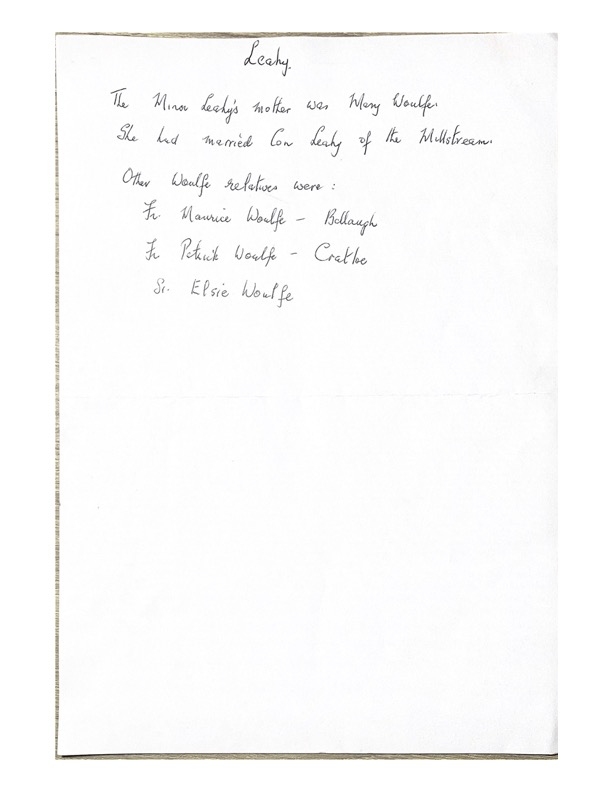 Leahy.
The Minor Leahy's mother was Mary Woulfe.
She had married Con Leahy of the Millstream.
Other Woulfe relatives were :
Fr. Maurice Woulfe – Bollaugh
Fr Patrick Woulfe – Cratloe
Sr. Elsie Woulfe